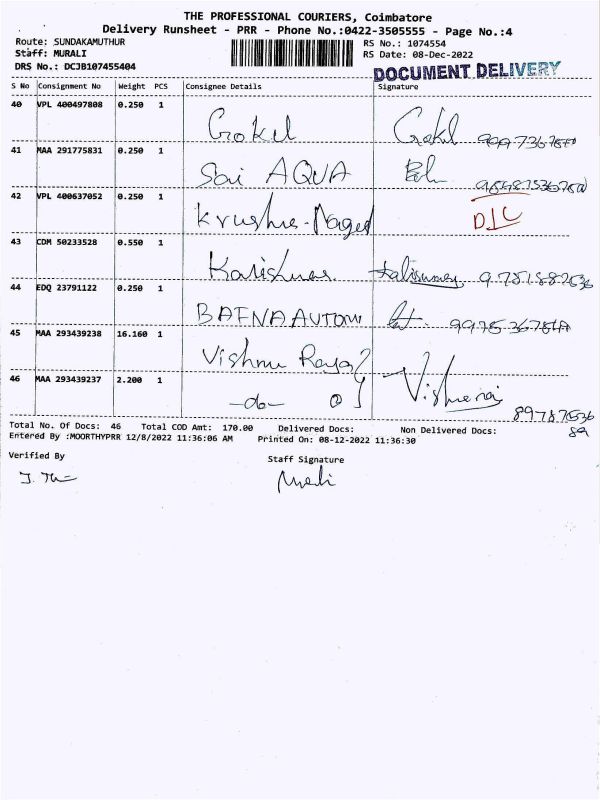 THE PROFESSIONAL COURIERS, Coimbatore
Delivery Runsheet - PRR - Phone No.:0422-3505555 - Page No.:4
Route: SUNDAKAMUTHUR RS No.: 1074554
Staff: MURALI RS Date: 08-Dec-2022
DRS No.: DCJB107455404 DOCUMENT DELIVERY
S No Consignment No Weight PCS Consignee Details Signature
40 VPL 400497808 0.250 1 Gokul Gokul
41 MAA 291775831 0.250 1 Sai AQUA
42 VPL 400637052 0.250 1 D/C
43 CDM 50233528 0.550 1
44 EDQ 23791122 0.250 1 BAFNA AUTOM
45 MAA 293439238 16.160 1 Vishnu Raja
46 MAA 293439237 2.200 1 -do-
Total No. Of Docs: 46 Total COD Amt: 170.00 Delivered Docs: Non Delivered Docs:
Entered By :MOORTHYPRR 12/8/2022 11:36:06 AM Printed On: 08-12-2022 11:36:30
Verified By Staff Signature
Murali